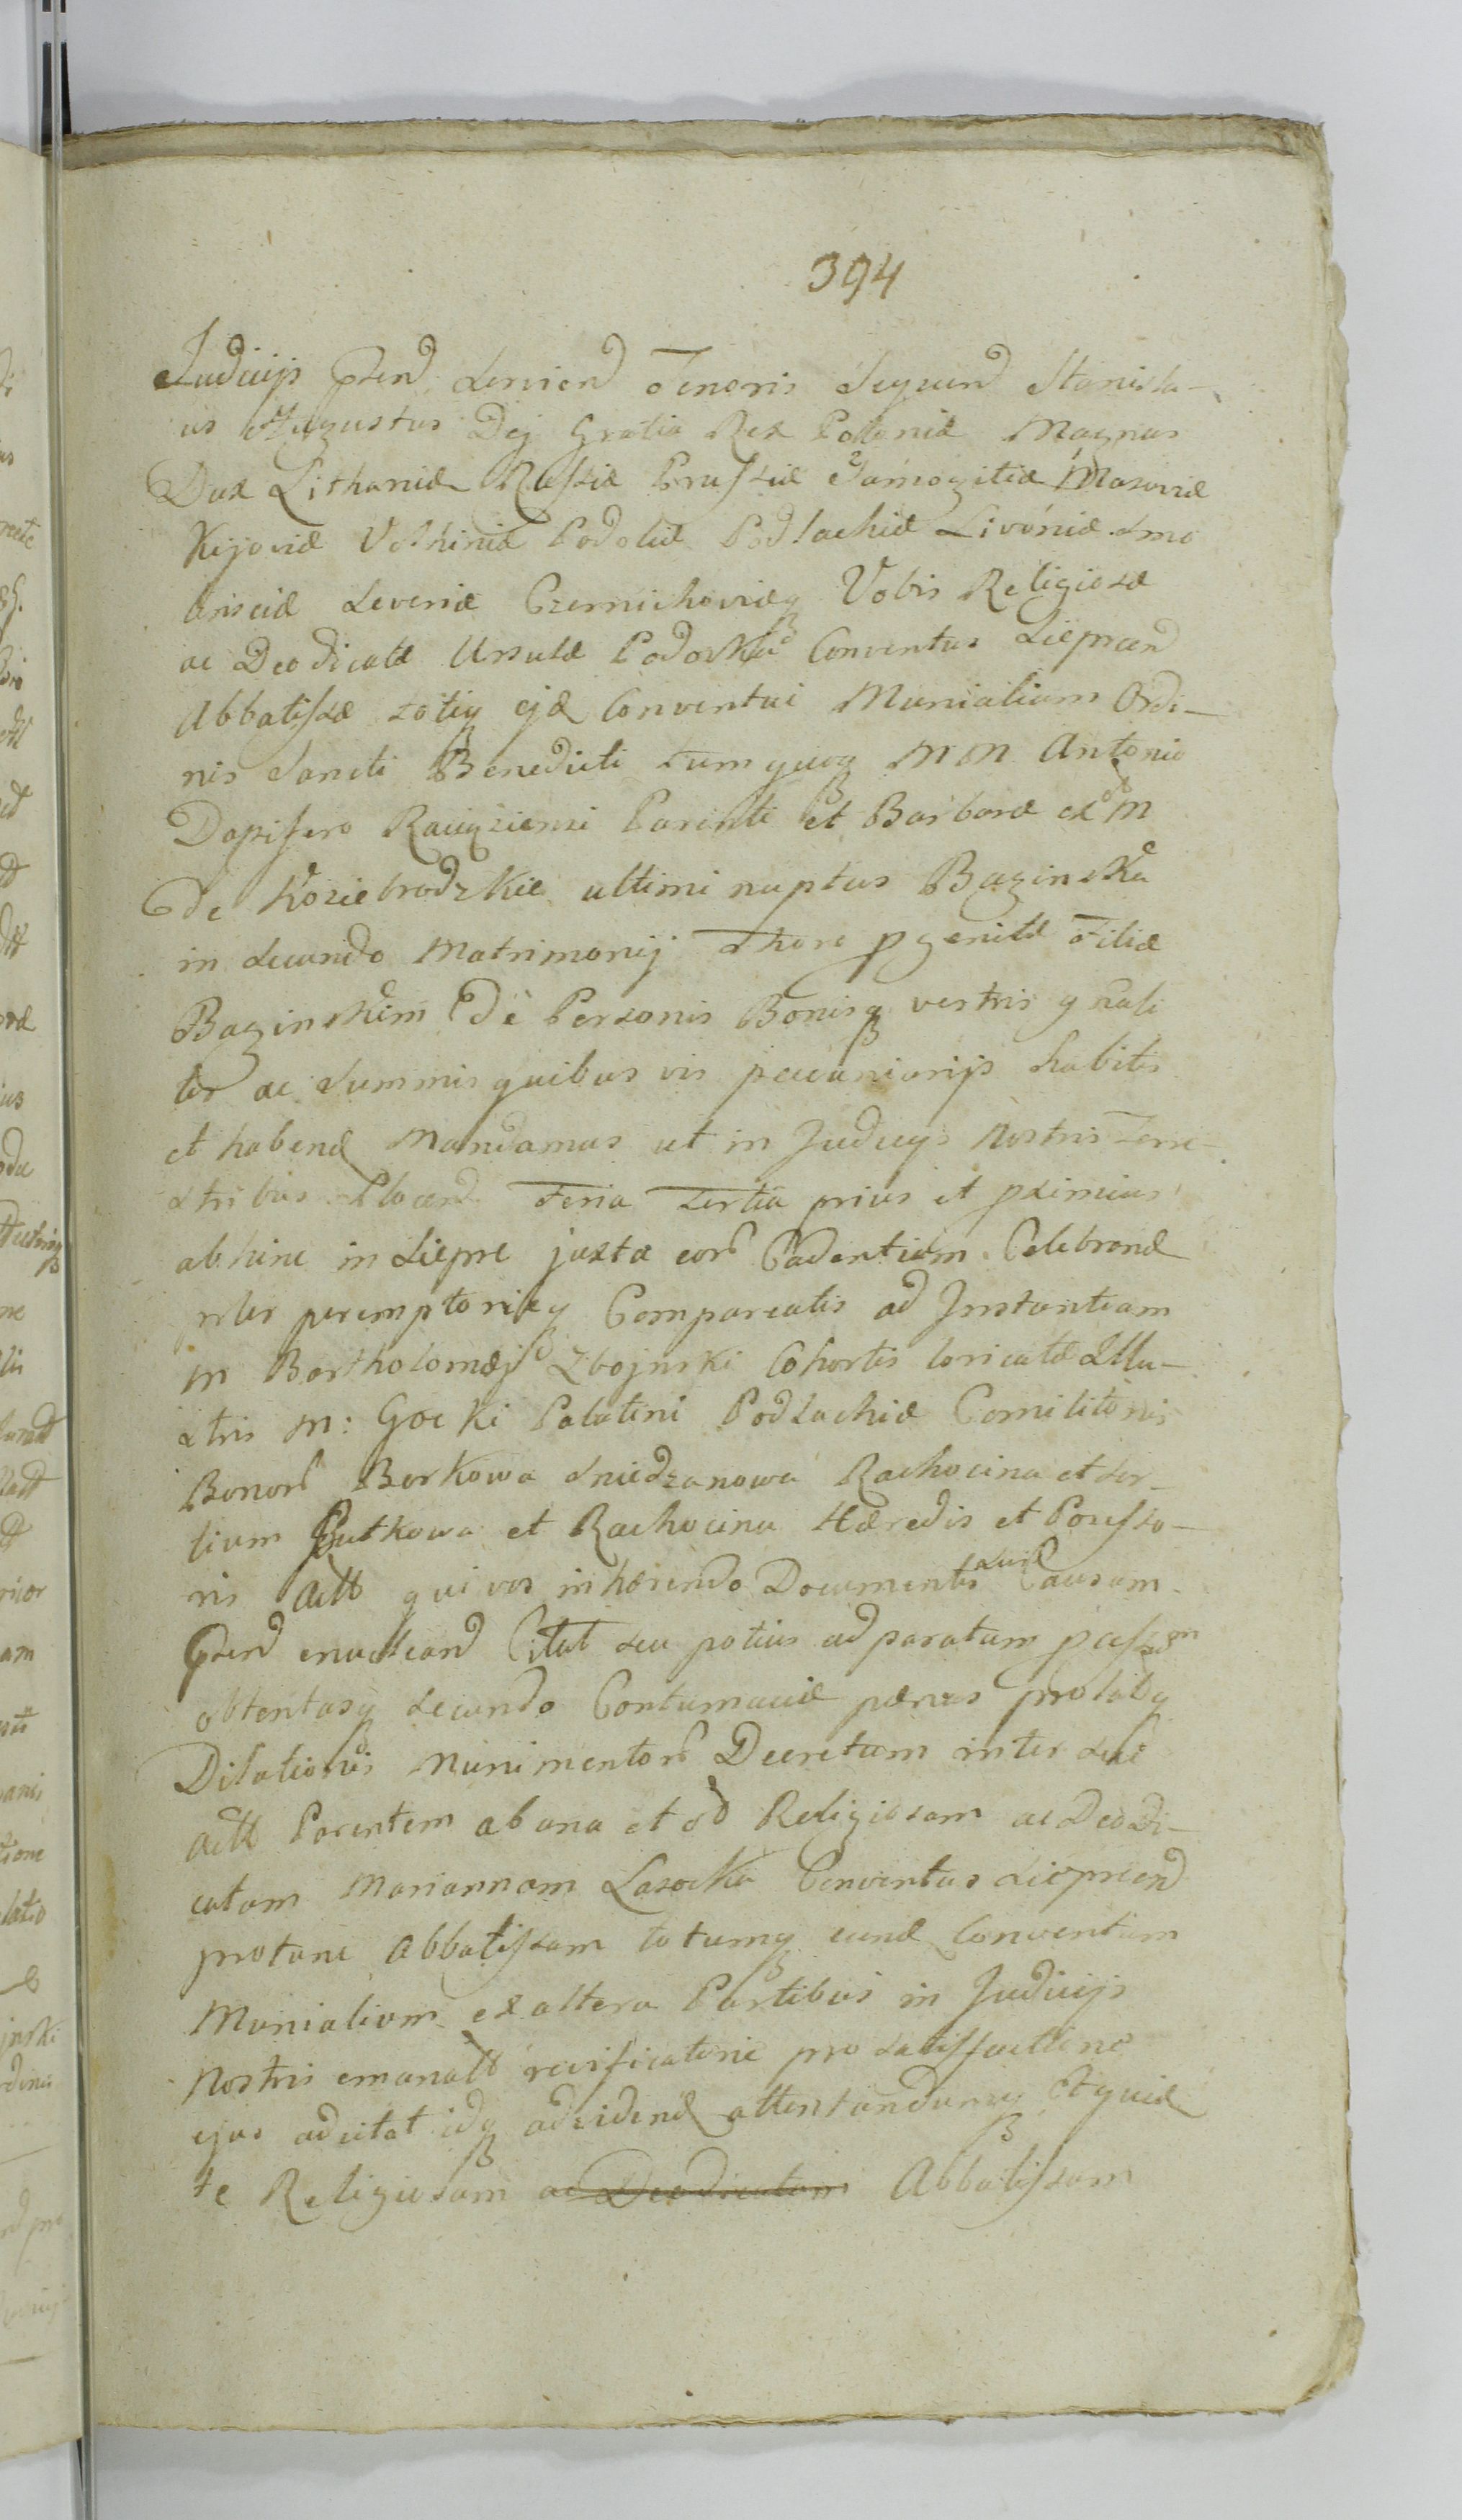 394
Judicijs Pttend Serviend Tenoris Sequend Stanisla-
us Augustus Dej Gratia Rex Poloniæ Magnus
Dux Lithaniæ Russiæ Prussiæ Samogitiæ Masoviæ
Kijoviæ Volhiniæ Podoliæ Podlachiæ Livoniæ Smo
lensciæ Severiæ Czernichoviæq Vobis Religiosæ
ac Deodicatæ Ursulæ Podoska Conventus Sieprcen
Abbatissæ totiq ejd Conventui Monialium Ordi-
nis Sancti Benedicti tumquoq MM Antonio
Dapifero Raciąziensi Parenti et Barbaræ ex M
de Koziebrodzkie ultimi nuptus Bagińska
in Secundo Matrimonij Thoro pgenitæ Filiæ
Bagińskim De Personis Bonisq vestris gnali
ter ac Summis quibus vis pecuniarijs habitis
et habend Mandamus ut in Judicijs Nostris Terre-
stribus Plocen Feria tertia prius et pximius
abhinc in Siepre juxta eor Cadentiam Celebrand
pnter peremptorieq Compareatis ad Instantiam
M Bartholomæj Zbojnski Cohortis loricatæ Illu-
stris M: Gocki Palatini Podlachiæ Comilitonis
Bonor Borkowa Sniedzanowa Rachocina et Sor-
tium Rutkowa et Rachocina Hæredis et Possesso-
ris Actt qui vos inhærendo Documentis suis Causam
Pttend enuclean Citat seu potius ad paratum passam
obtentasq secundo Contumaciæ pænas probatq
Dilationis Munimentor Decretum inter Sui
Actt Parentem ab una et od Religiosam ac Deodi-
catam Mariannam Lasocka Conventus Sieprcen
protunc Abbatissam totumq eund Conventum
Monialium ex altera Partibus in Judicijs
Nostris emanatt reificatorie pro satisfactione
ejus adcitat idq ad videnд attentandumq Et quia
te Religiosam ac Deodicatam Abbatissam